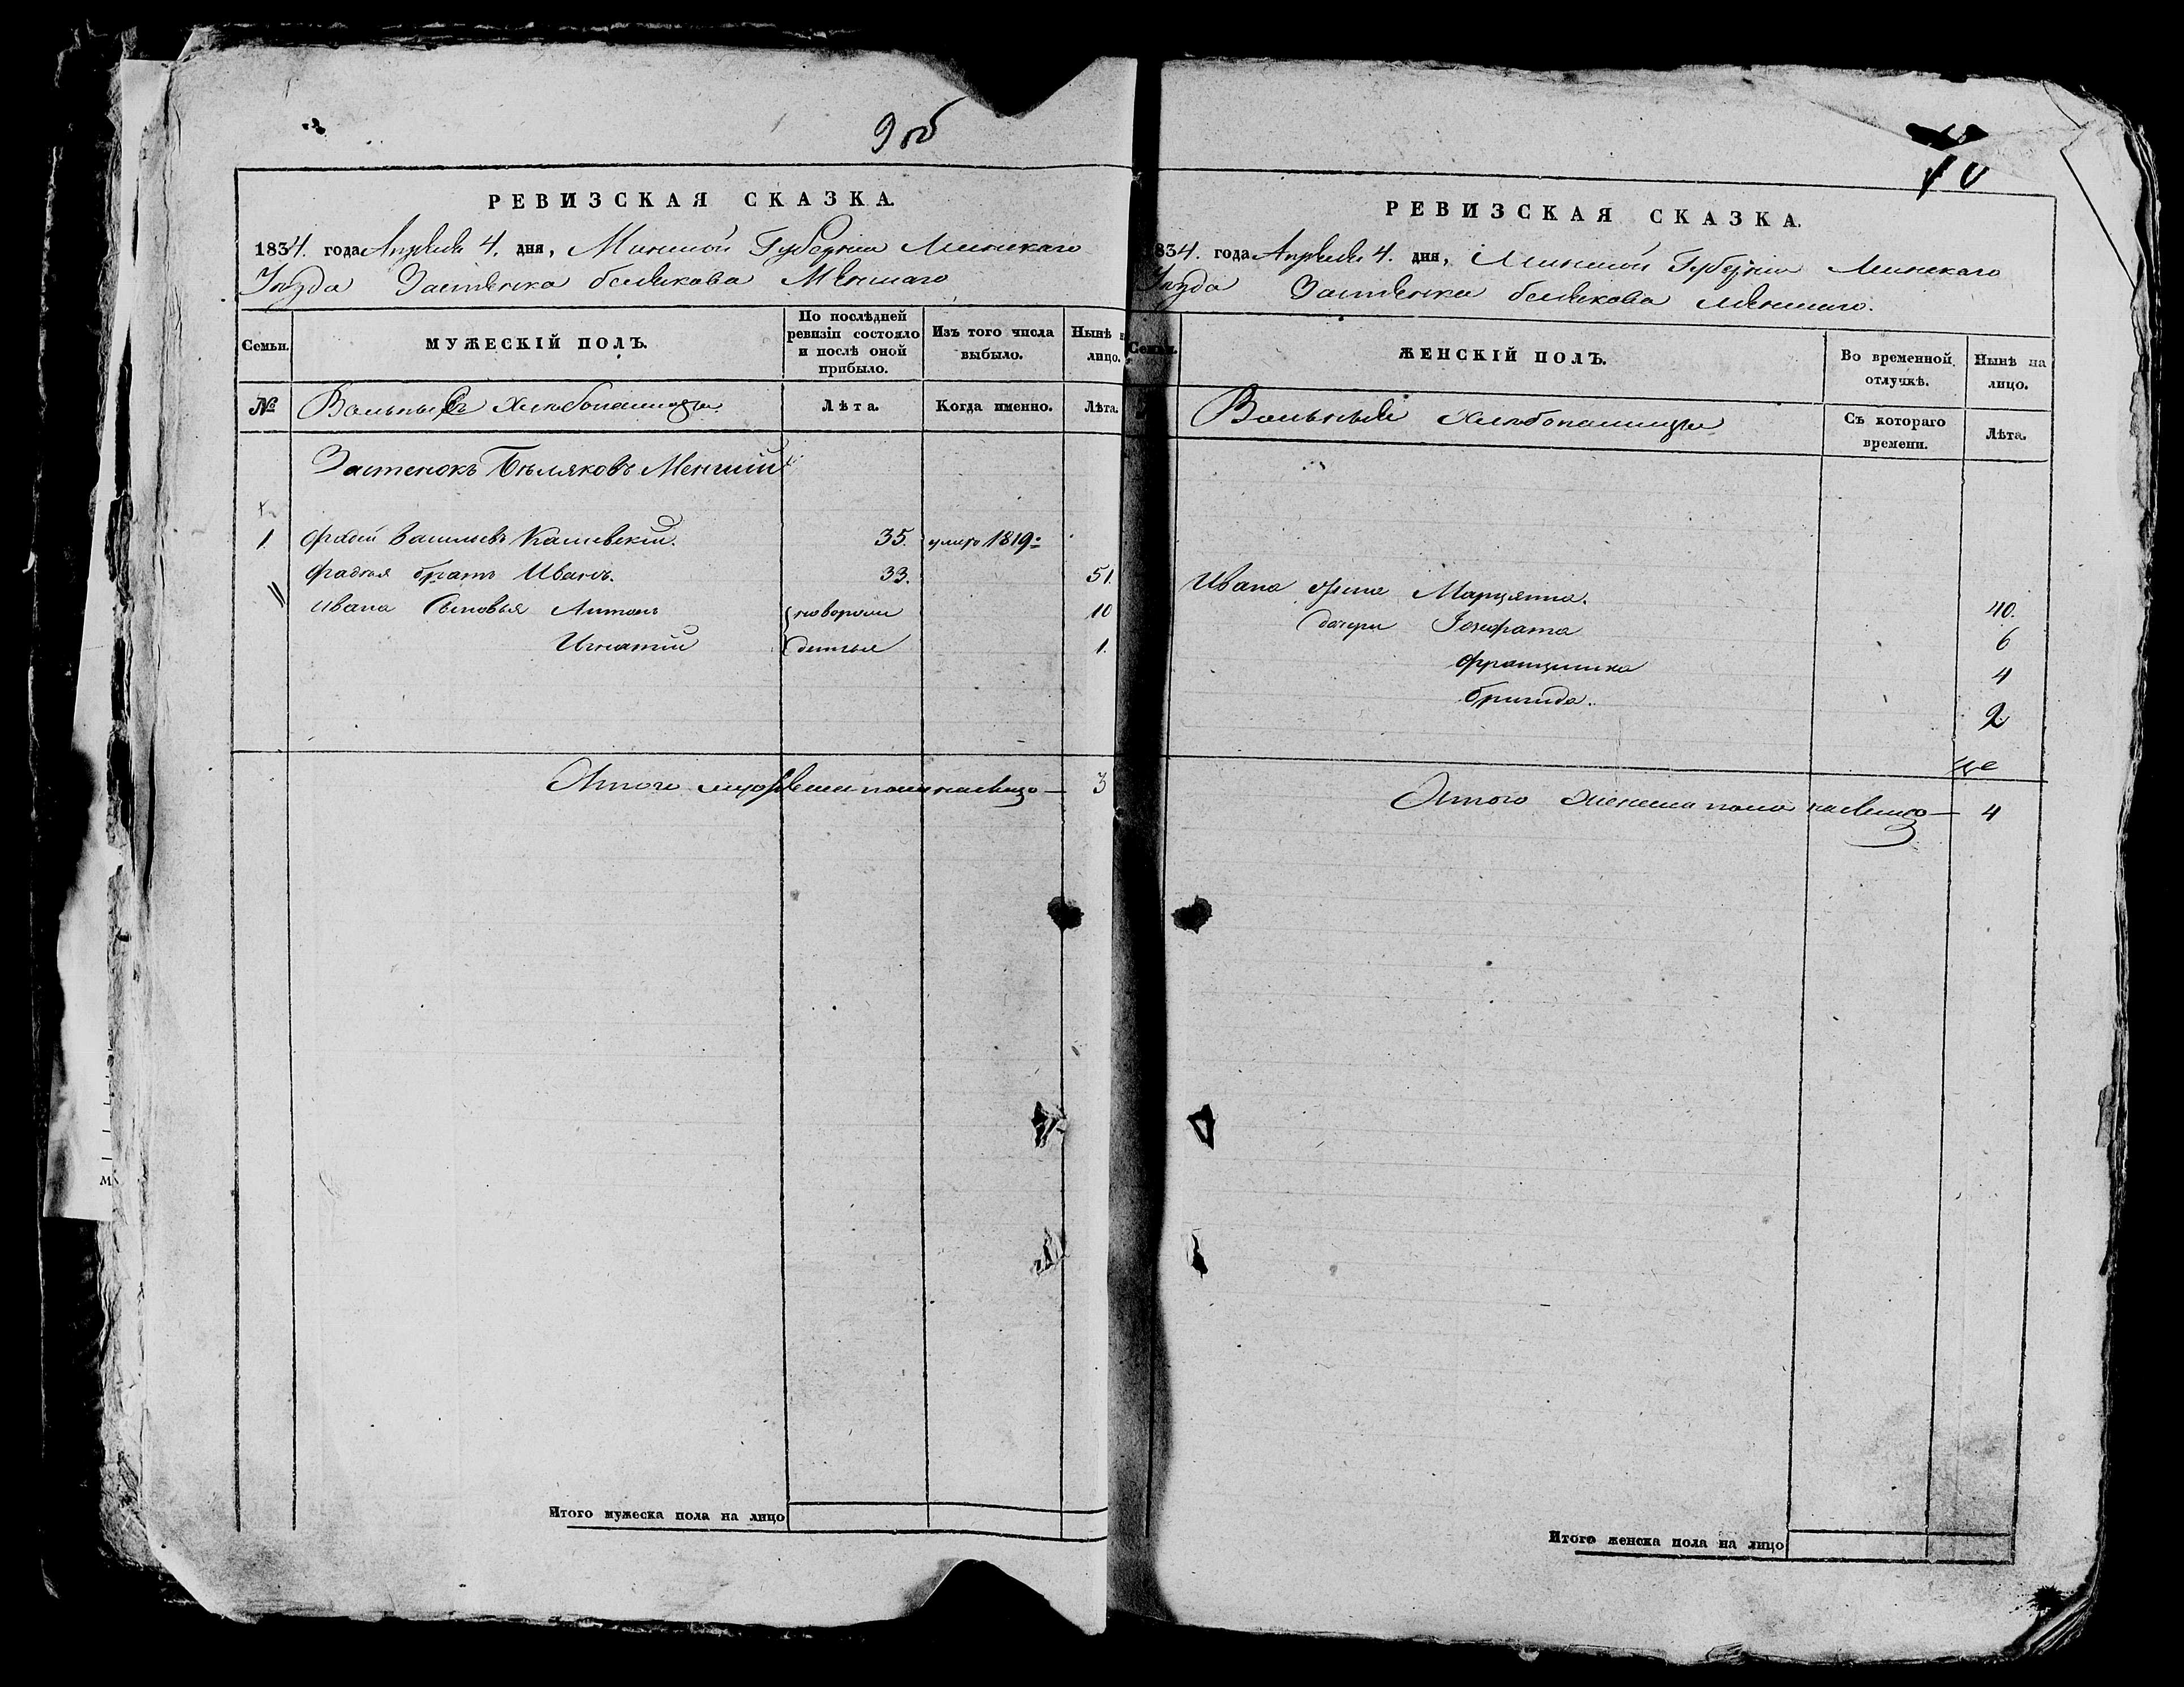 9об
РЕВИЗСКАЯ СКАЗКА.
1834. года Апреля 4. дня, Минской Губерніи Минскаго
Уезда Застенка белякова Меншаго
Семьи.
МУЖЕСКІЙ ПОЛЪ.
По послѣдней ревизіи состояло и послѣ оной прибыло.
Изъ того числа выбыло.
Нынѣ н лицо.
№
Вольные Хлебопашцы.
Лѣта.
Когда именно.
Лѣта.
Застенокъ Бѣляковъ Меншій
1 Фадей Васильевъ 35. умеръ 1819:
Фадея братъ Иванъ. 33. 51.
Ивана Сыновья Антонъ новорож 10
Игнатій денные 1.
Итого мужеска пола на лицо — 3
Итого мужеска пола на лицо
10
РЕВИЗСКАЯ СКАЗКА.
834. года Апреля 4. дня, Минской Губерніи Минскаго
Уезда Застенка белякова Меншаго.
Семьи.
ЖЕНСКІЙ ПОЛЪ.
Во временной отлучкѣ.
Нынѣ на лицо.
Вольные Хлебопашцы
Съ котораго времени.
Лѣта.
Ивана Жена Марцянна. 40.
дочери Іозефата 6
Францишка 4
Бригида. 2
Итого женска пола на лицо — 4
Итого женска пола на лицо